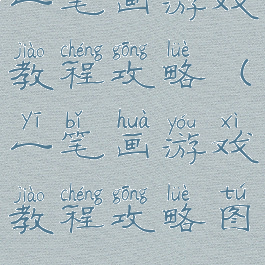 一笔画游戏
jiào chéng gōng lüè
教程攻略(
yī bǐ huà yóu xì
一笔画游戏
jiào chéng gōng lüè tú
教程攻略图